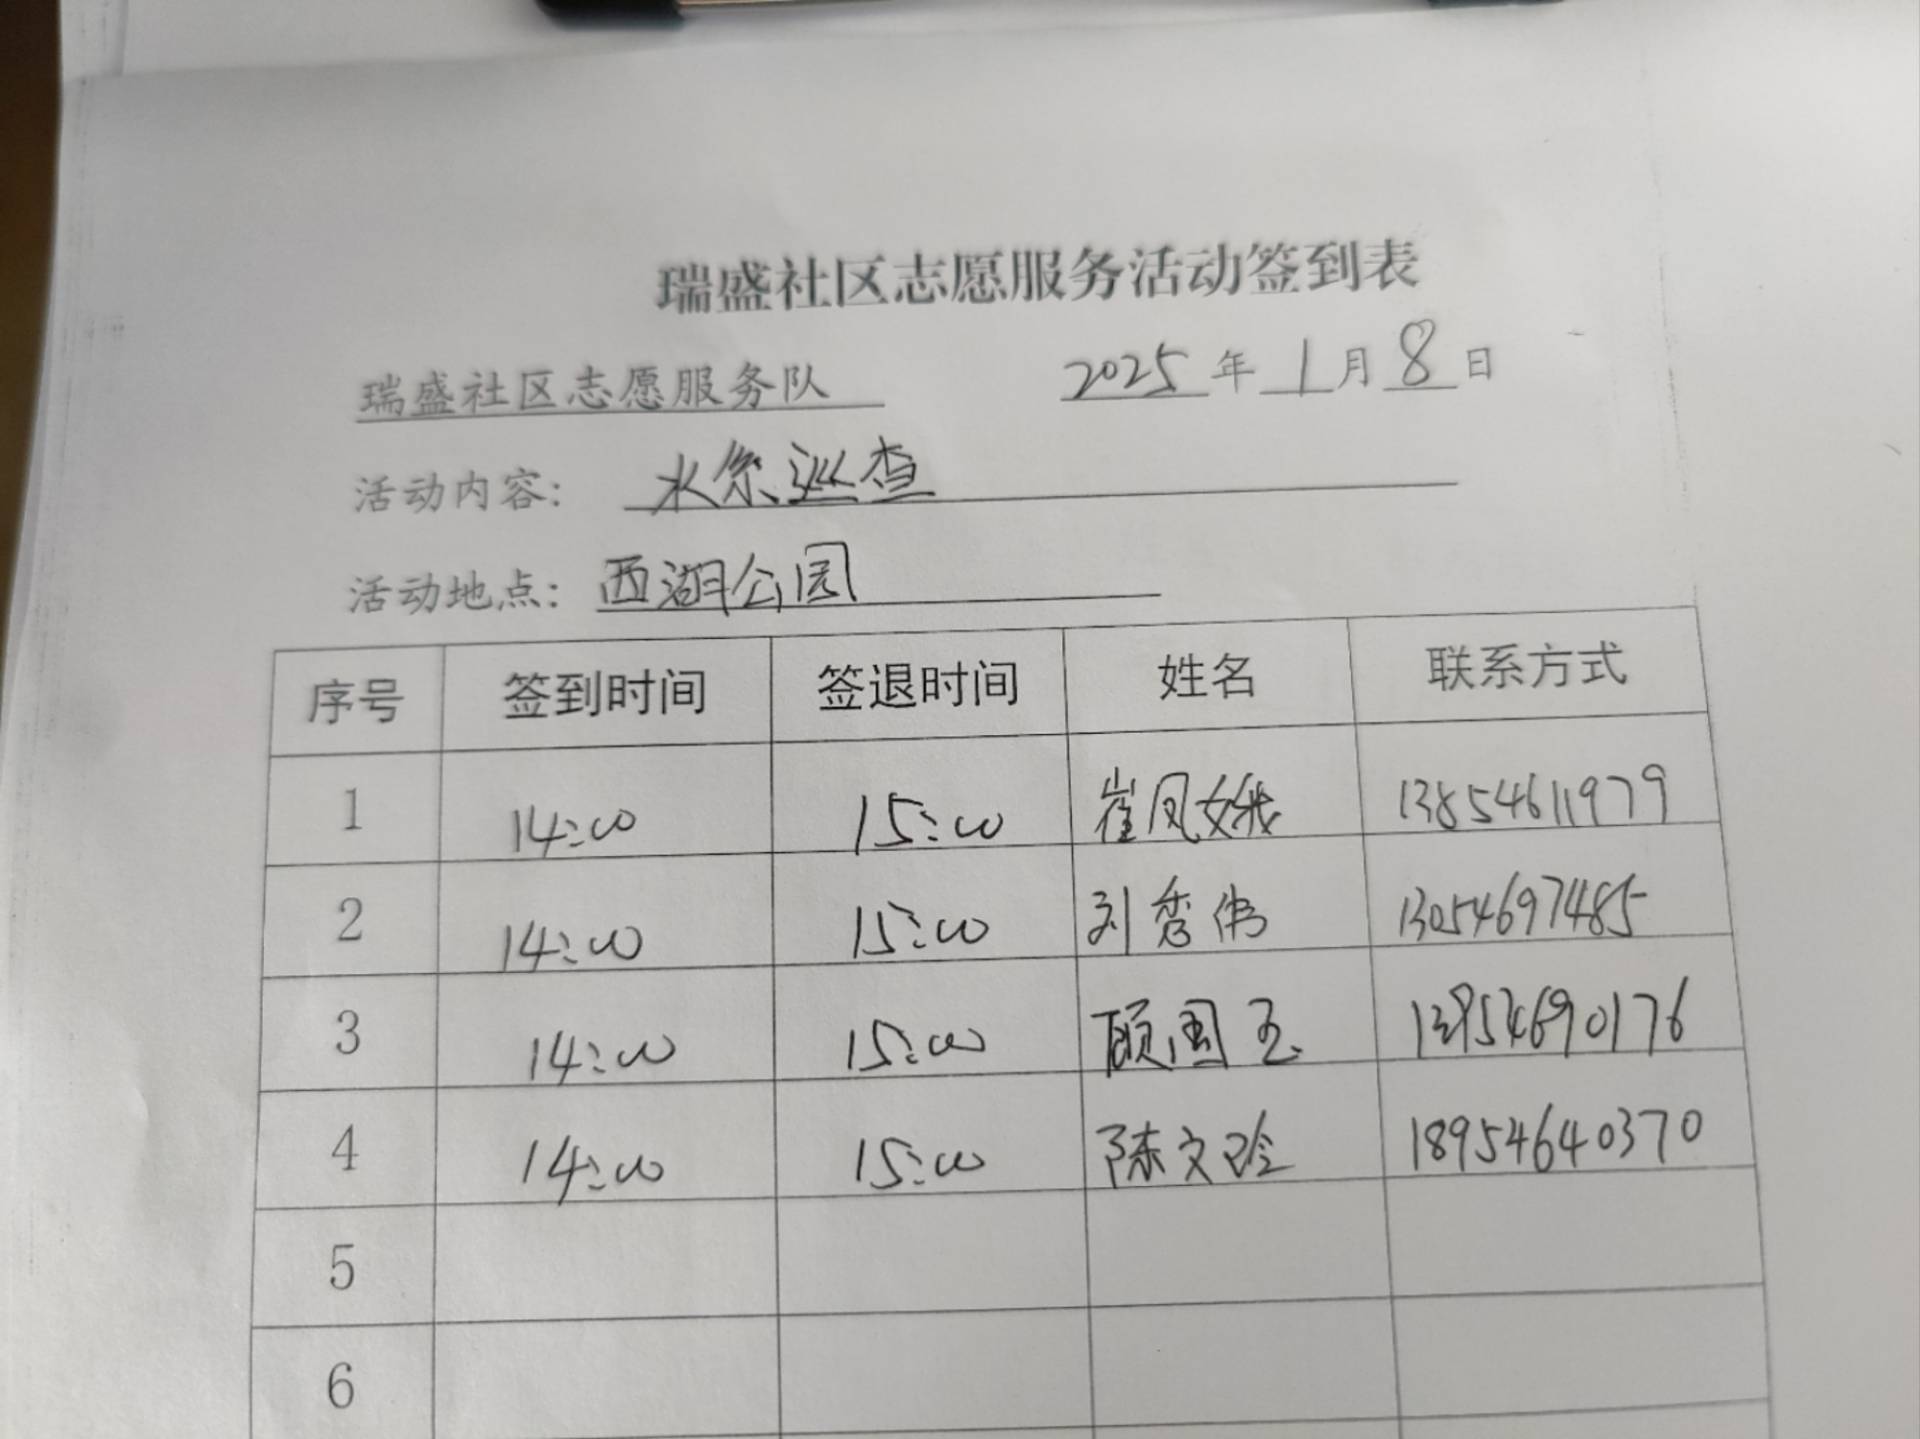 瑞盛社区志愿服务活动签到表
瑞盛社区志愿服务队 2025年1月8日
活动内容: 水系巡查
活动地点: 西湖公园
序号 签到时间 签退时间 姓名 联系方式
1 14:00 15:00 崔凤娥 13854611979
2 14:00 15:00 刘秀伟 13054697485
3 14:00 15:00 顾国玉 13954690176
4 14:00 15:00 陈文玲 18954640370
5
6